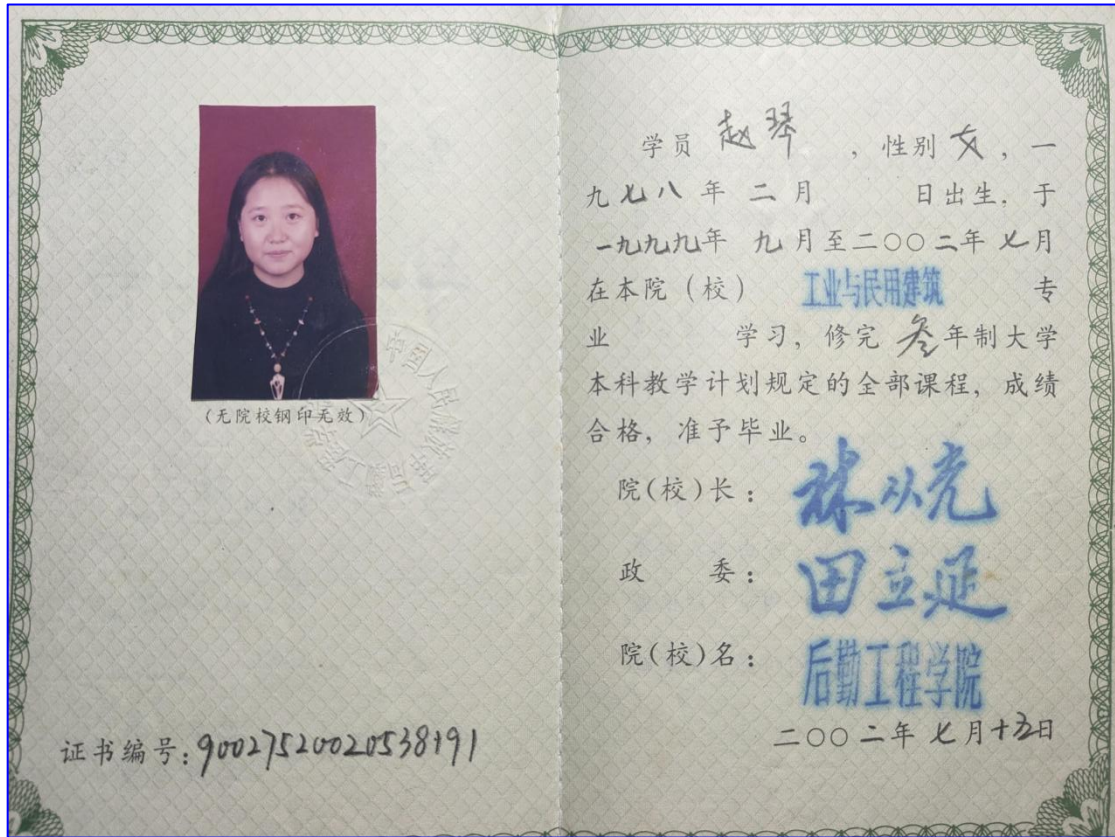 (无院校钢印无效)
证书编号:90027520020538191
学员 赵琴 ,性别 女 ,一
九七八年 二月 日出生.于
一九九九年 九月至二〇〇二年 七月
在本院(校) 工业与民用建筑 专
业 学习,修完 叁年制大学
本科教学计划规定的全部课程,成绩
合格,准予毕业。
院(校)长:
政 委: 田立延
院(校)名: 后勤工程学院
二〇〇二年 七月十五日